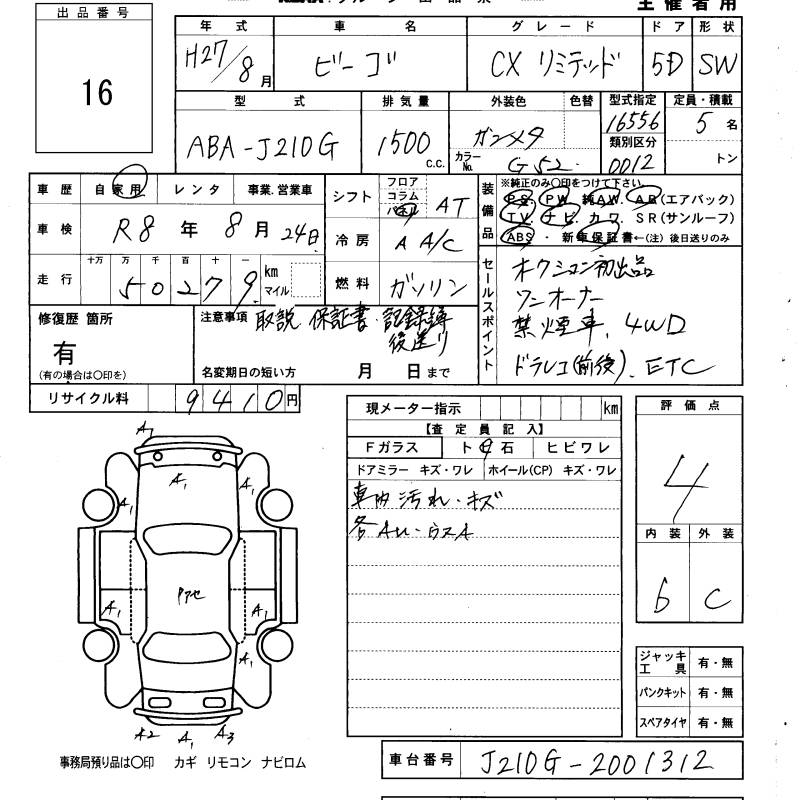 主催者用
出品番号
16
年式 車名 グレード ドア 形状
H27/8月 ビーゴ CX リミテッド 5D SW
型式 排気量 外装色 色替 型式指定 定員・積載
ABA-J210G 1500 c.c. ガンメタ カラーNo. G52 16556 類別区分 0012 5名 トン
車歴 自家用 レンタ 事業.営業車
車検 R8年 8月 24日
走行 十万 万 千 百 十 一 km マイル
50279
シフト フロア コラム パネル AT
冷房 A A/C
燃料 ガソリン
装備品 ※純正のみ〇印をつけて下さい
PS PW 純AW. AB(エアバック)
TV. ナビ. カワ. SR(サンルーフ)
ABS ・ 新車保証書←(注) 後日送りのみ
セールスポイント
オークション初出品
ワンオーナー
禁煙車. 4WD
ドラレコ(前後). ETC
修復歴 箇所
有
(有の場合は〇印を)
注意事項 取説 保証書.記録簿
後送り
名変期日の短い方 月 日まで
リサイクル料 9410円
現メーター指示 km
【査定員記入】
Fガラス ト 石 ヒビワレ
ドアミラー キズ・ワレ ホイール(CP) キズ・ワレ
車内汚れ・キズ
各AU・ウスA
評価点
4
内装 外装
6 C
ジャッキ工具 有・無
パンクキット 有・無
スペアタイヤ 有・無
A1
A1 A1
A1
Pアセ
A1 A1
A1
A2 A1 A3
事務局預り品は〇印 カギ リモコン ナビロム
車台番号 J210G-2001312